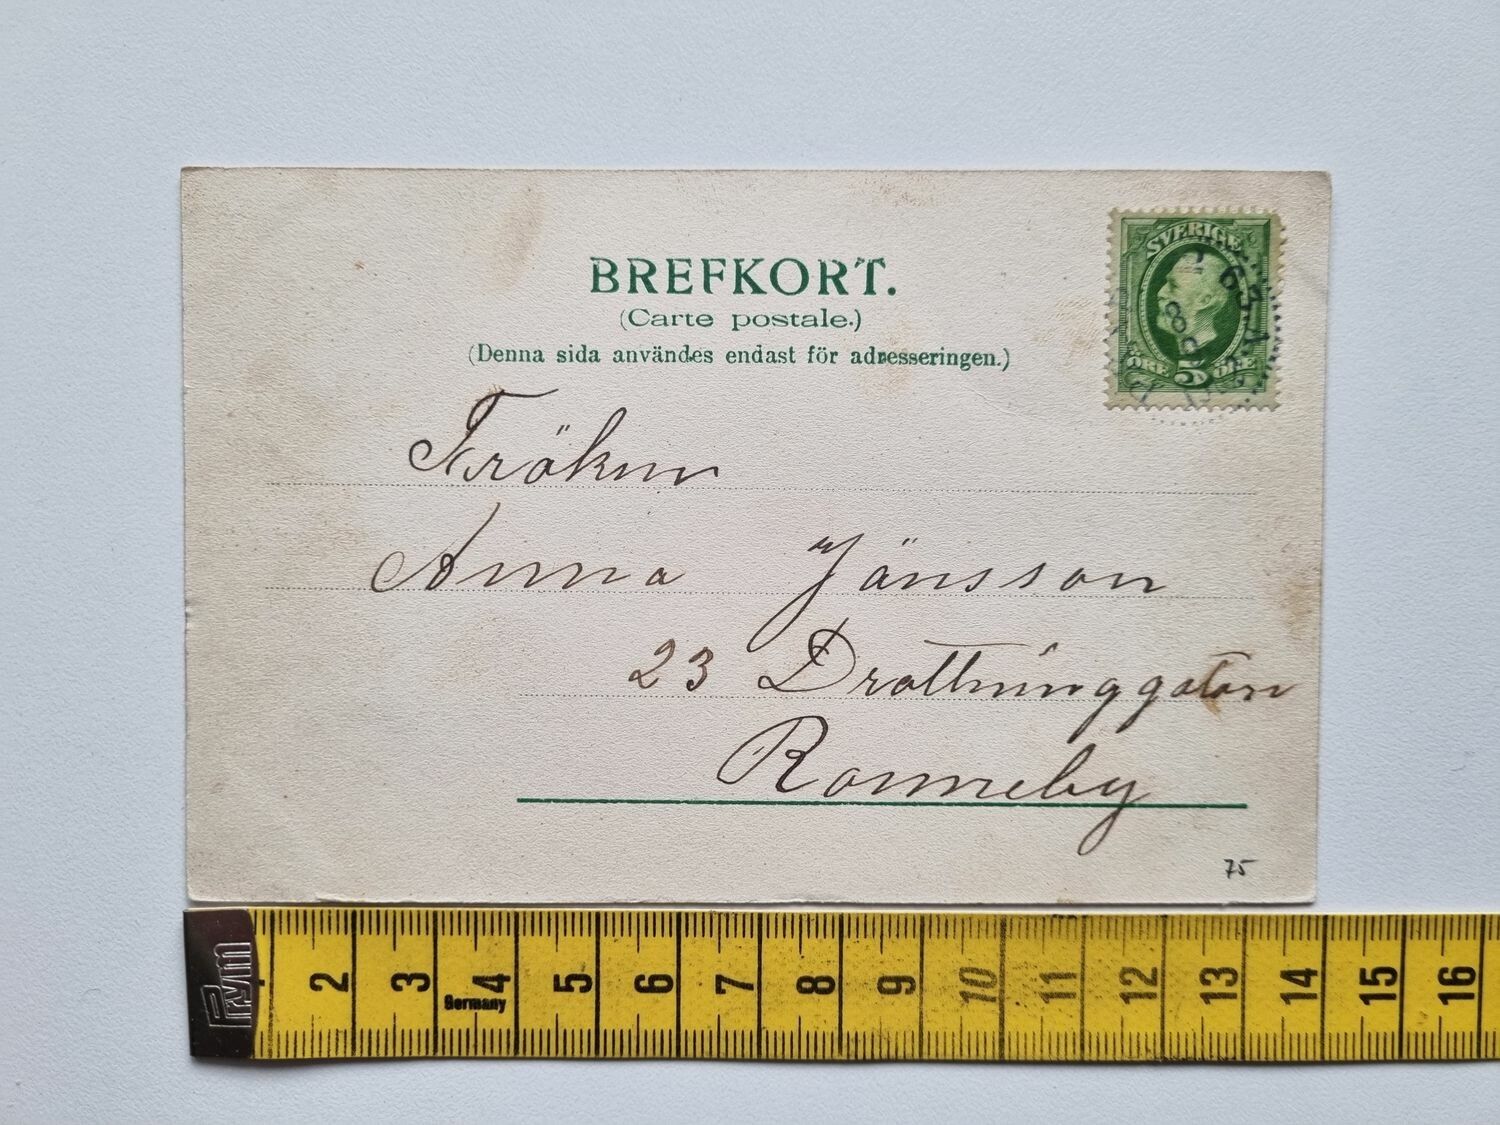 BREFKORT.
(Carte postale.)
(Denna sida användes endast för adresseringen.)
SVERIGE
ÖRE 5 ÖRE
Fröken
Anna Jönsson
23 Drottninggatan
Ronneby
75
Prym
2 3 4 5 6 7 8 9 10 11 12 13 14 15 16
Germany